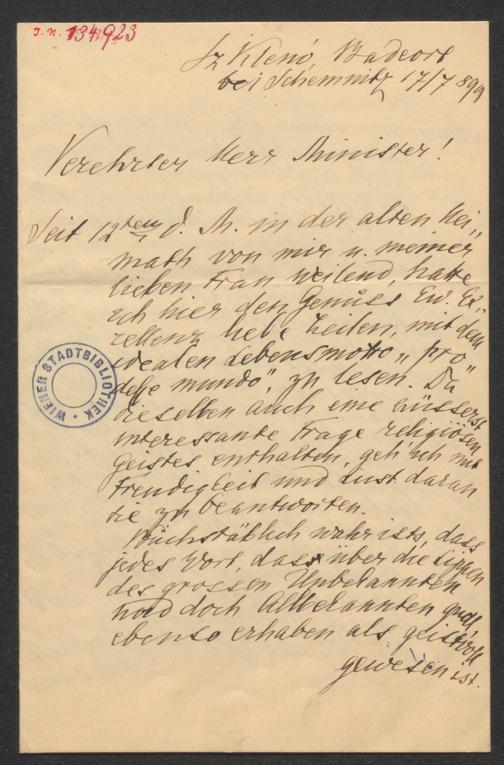 J. N. 134.923
Sz Kleno, Badeort
bei Schemnitz 17/7 899
Verehrter Herr Minister!
Seit 12ten d. M. in der alten Hei„
math von mir u. meiner
lieben Frau weilend, hatte
ich hier den Genuss Ew. Ex„
zellenz liebe Zeilen, mit dem
idealen Lebensmotto „pro
mundo", zu lesen. Da
dieselben auch eine äusserst
interessante Frage religiösen
Geistes enthalten, geh' ich mit
Freudigkeit und Lust daran
sie zu beantworten.
Buchstäblich wahr ists, dass
jedes Wort, dass über die Lippen
des grossen Unbekannten
und doch Allbekannten
ebenso erhaben als geistvoll
gewesen ist.
WIENER STADTBIBLIOTHEK